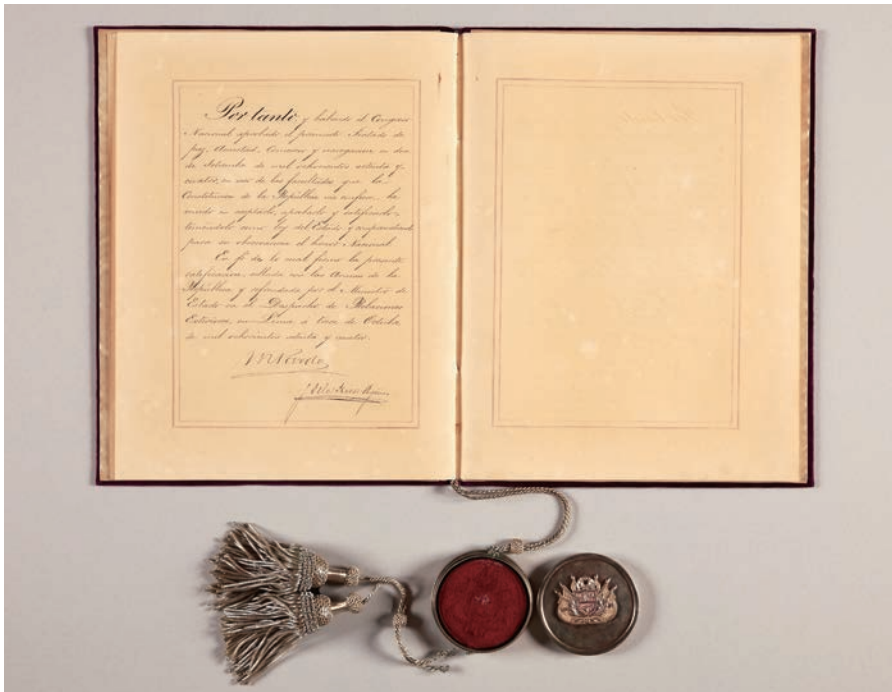 Por tanto y habiendo el Congreso
Nacional aprobado el presente Tratado de
paz, Amistad, Comercio y navegacion en dos
de de mil ochocientos setenta y
cuatro, en uso de las facultades que la
Constitucion de la República me confiere, he
venido en aceptarlo, aprobarlo y ratificarlo,
teniéndolo como ley del Estado y comprometiendo
para su observancia el honor Nacional.
En fé de lo cual firmo la presente
ratificacion, sellada con las Armas de la
República y refrendada por el Ministro de
Estado en el Despacho de Relaciones
Exteriores, en Lima á trece de Octubre
de mil ochocientos setenta y cuatro.